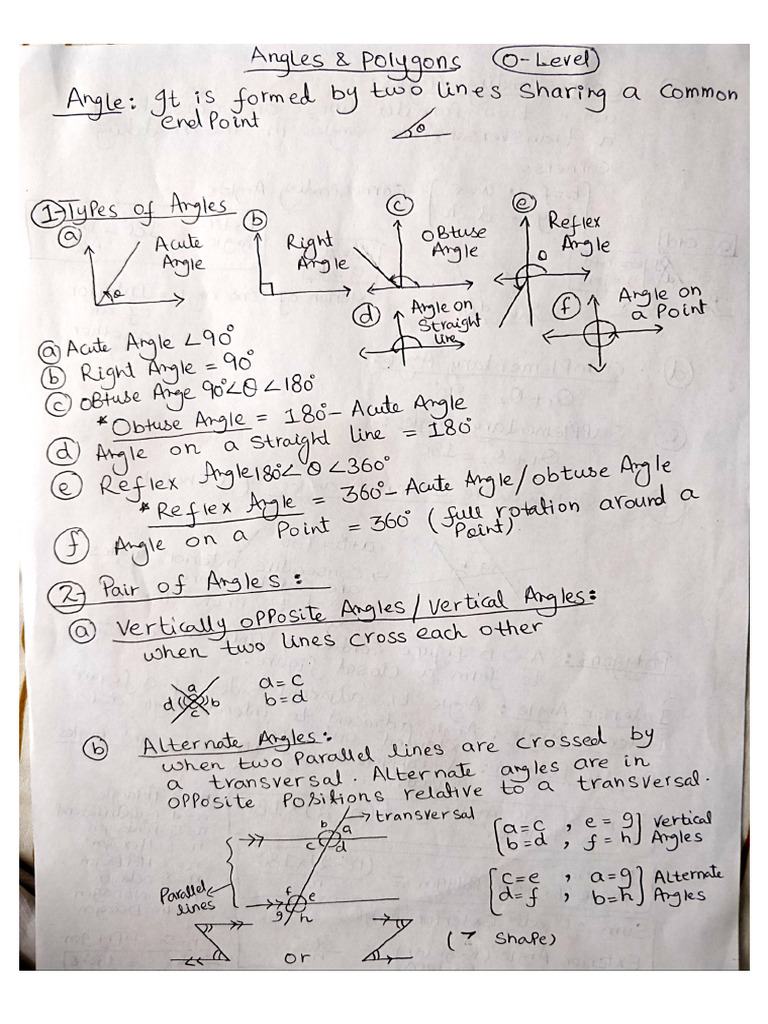 Angles & Polygons (O-Level)
Angle: It is formed by two lines sharing a common
end Point
θ
1- Types of Angles
a Acute Angle
θ
b Right Angle
c Obtuse Angle
e Reflex Angle
θ
d Angle on Straight line
f Angle on a Point
a Acute Angle ∠90°
b Right Angle = 90°
c Obtuse Ange 90°∠θ∠180°
* Obtuse Angle = 180° - Acute Angle
d Angle on a straight line = 180°
e Reflex Angle 180°∠θ∠360°
* Reflex Angle = 360° - Acute Angle/obtuse Angle
f Angle on a Point = 360° (full rotation around a
Point)
2- Pair of Angles:
a Vertically opposite Angles/Vertical Angles:
when two lines cross each other
a
d b
c
a = c
b = d
b Alternate Angles:
when two Parallel lines are crossed by
a transversal. Alternate angles are in
opposite Positions relative to a transversal.
transversal
b a
c d
Parallel
lines
f e
g h
[a = c , e = g] Vertical
[b = d , f = h] Angles
[c = e , a = g] Alternate
[d = f , b = h] Angles
or
(Z Shape)